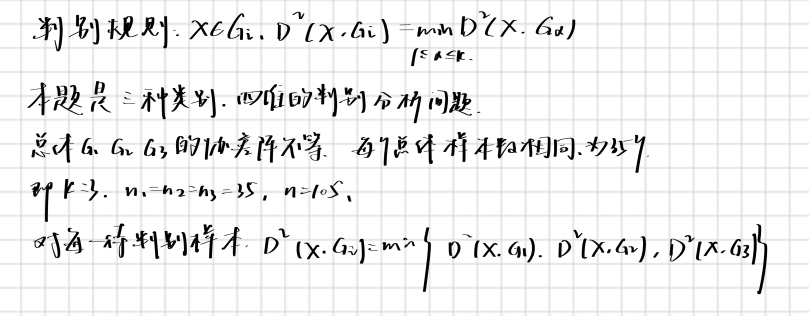 判别规则. X∈Gi, D²(X, Gi) = min D²(X. Gα)
1≤α≤k.
本题是三种类别. 四维的判别分析问题.
总体 G₁ G₂ G₃ 的协差阵不等. 每个总体样本均相同.为35个.
即 k=3. n₁=n₂=n₃=35, n=105,
对每一待判别样本. D²(X.Gi)=min{D²(X.G₁). D²(X.G₂), D²(X.G3)}